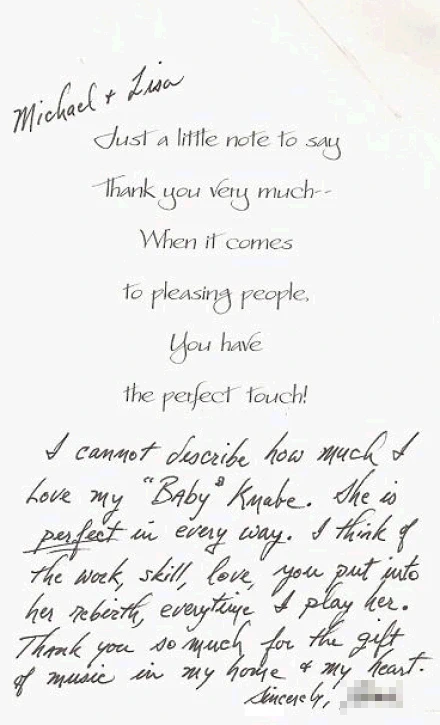 Michael + Lisa
Just a little note to say
Thank you very much--
When it comes
to pleasing people,
You have
the perfect touch!
I cannot describe how much I
love my "Baby" Knabe. She is
perfect in every way. I think of
the work, skill, love, you put into
her rebirth, everytime I play her.
Thank you so much for the gift
of music in my home & my heart.
Sincerely,